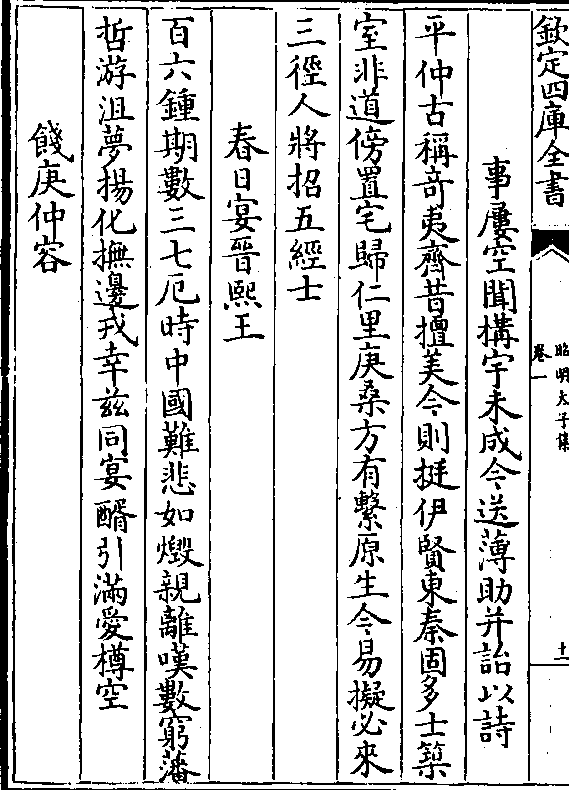 欽定四庫全書
昭明太子集
卷一
十一
事屢空聞構宇未成今送薄助并詒以詩
平仲古稱奇夷齊昔擅美令則挺伊賢東秦固多士築
室非道傍置宅歸仁里庚桑方有繫原生今易擬必來
三徑人將招五經士
春日宴晉熙王
百六鍾期數三七厄時中國難悲如燬親離嘆數窮藩
哲游沮夢揚化撫邊戎幸兹同宴醑引滿愛樽空
餞庾仲容